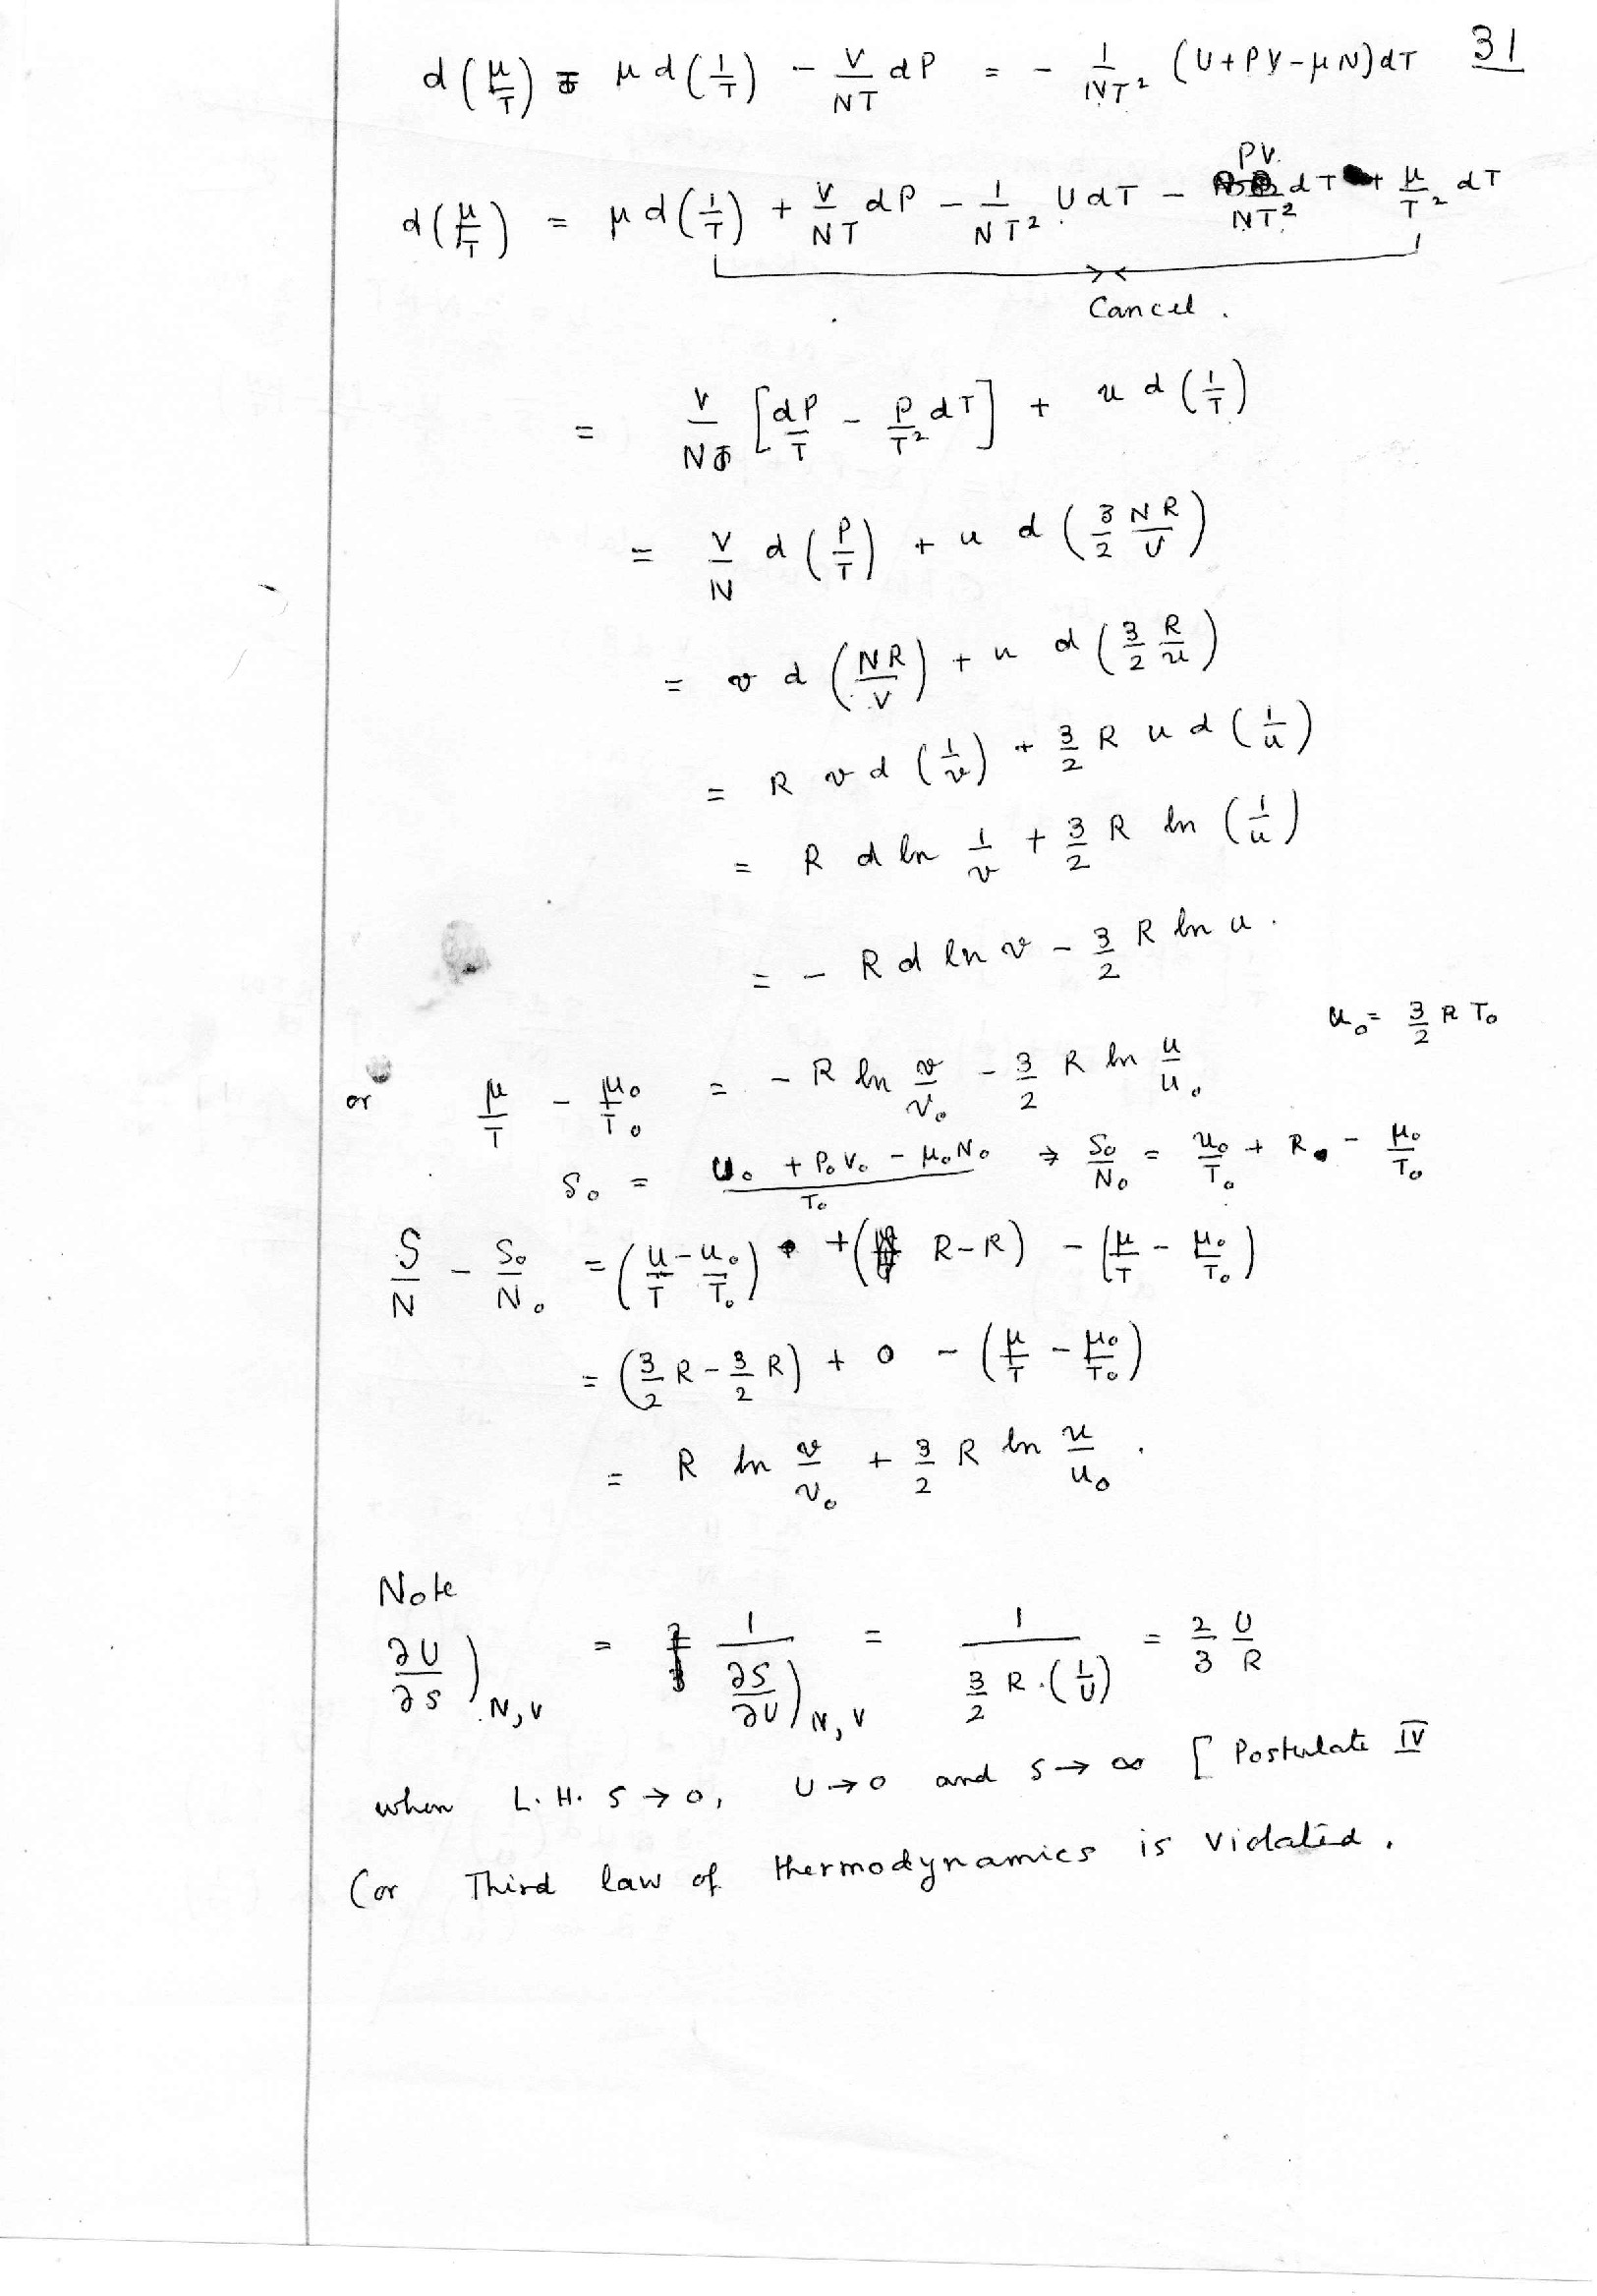 31
d(μ/T) = μ d(1/T) - V/NT dP = - 1/NT² (U+PV-μN)dT
d(μ/T) = μ d(1/T) + V/NT dP - 1/NT² U dT - PV/NT² dT + μ/T² dT
Cancel.
= V/N [dP/T - P/T² dT] + u d(1/T)
= V/N d(P/T) + u d(3/2 NR/U)
= v d(NR/V) + u d(3/2 R/u)
= R v d(1/v) + 3/2 R u d(1/u)
= R d ln 1/v + 3/2 R ln (1/u)
= - R d ln v - 3/2 R ln u.
u₀ = 3/2 R T₀
or μ/T - μ₀/T₀ = - R ln v/v₀ - 3/2 R ln u/u₀
S₀ = (U₀ + P₀V₀ - μ₀N₀)/T₀ ⇒ S₀/N₀ = u₀/T₀ + R - μ₀/T₀
S/N - S₀/N₀ = (u/T - u₀/T₀) + (R-R) - (μ/T - μ₀/T₀)
= (3/2 R - 3/2 R) + 0 - (μ/T - μ₀/T₀)
= R ln v/v₀ + 3/2 R ln u/u₀.
Note
∂U/∂S)N,V = 1/(∂S/∂U)N,V = 1/(3/2 R.(1/U)) = 2/3 U/R
when L.H.S → 0, U → 0 and S → ∞ [Postulate IV
(or Third law of thermodynamics is violated.